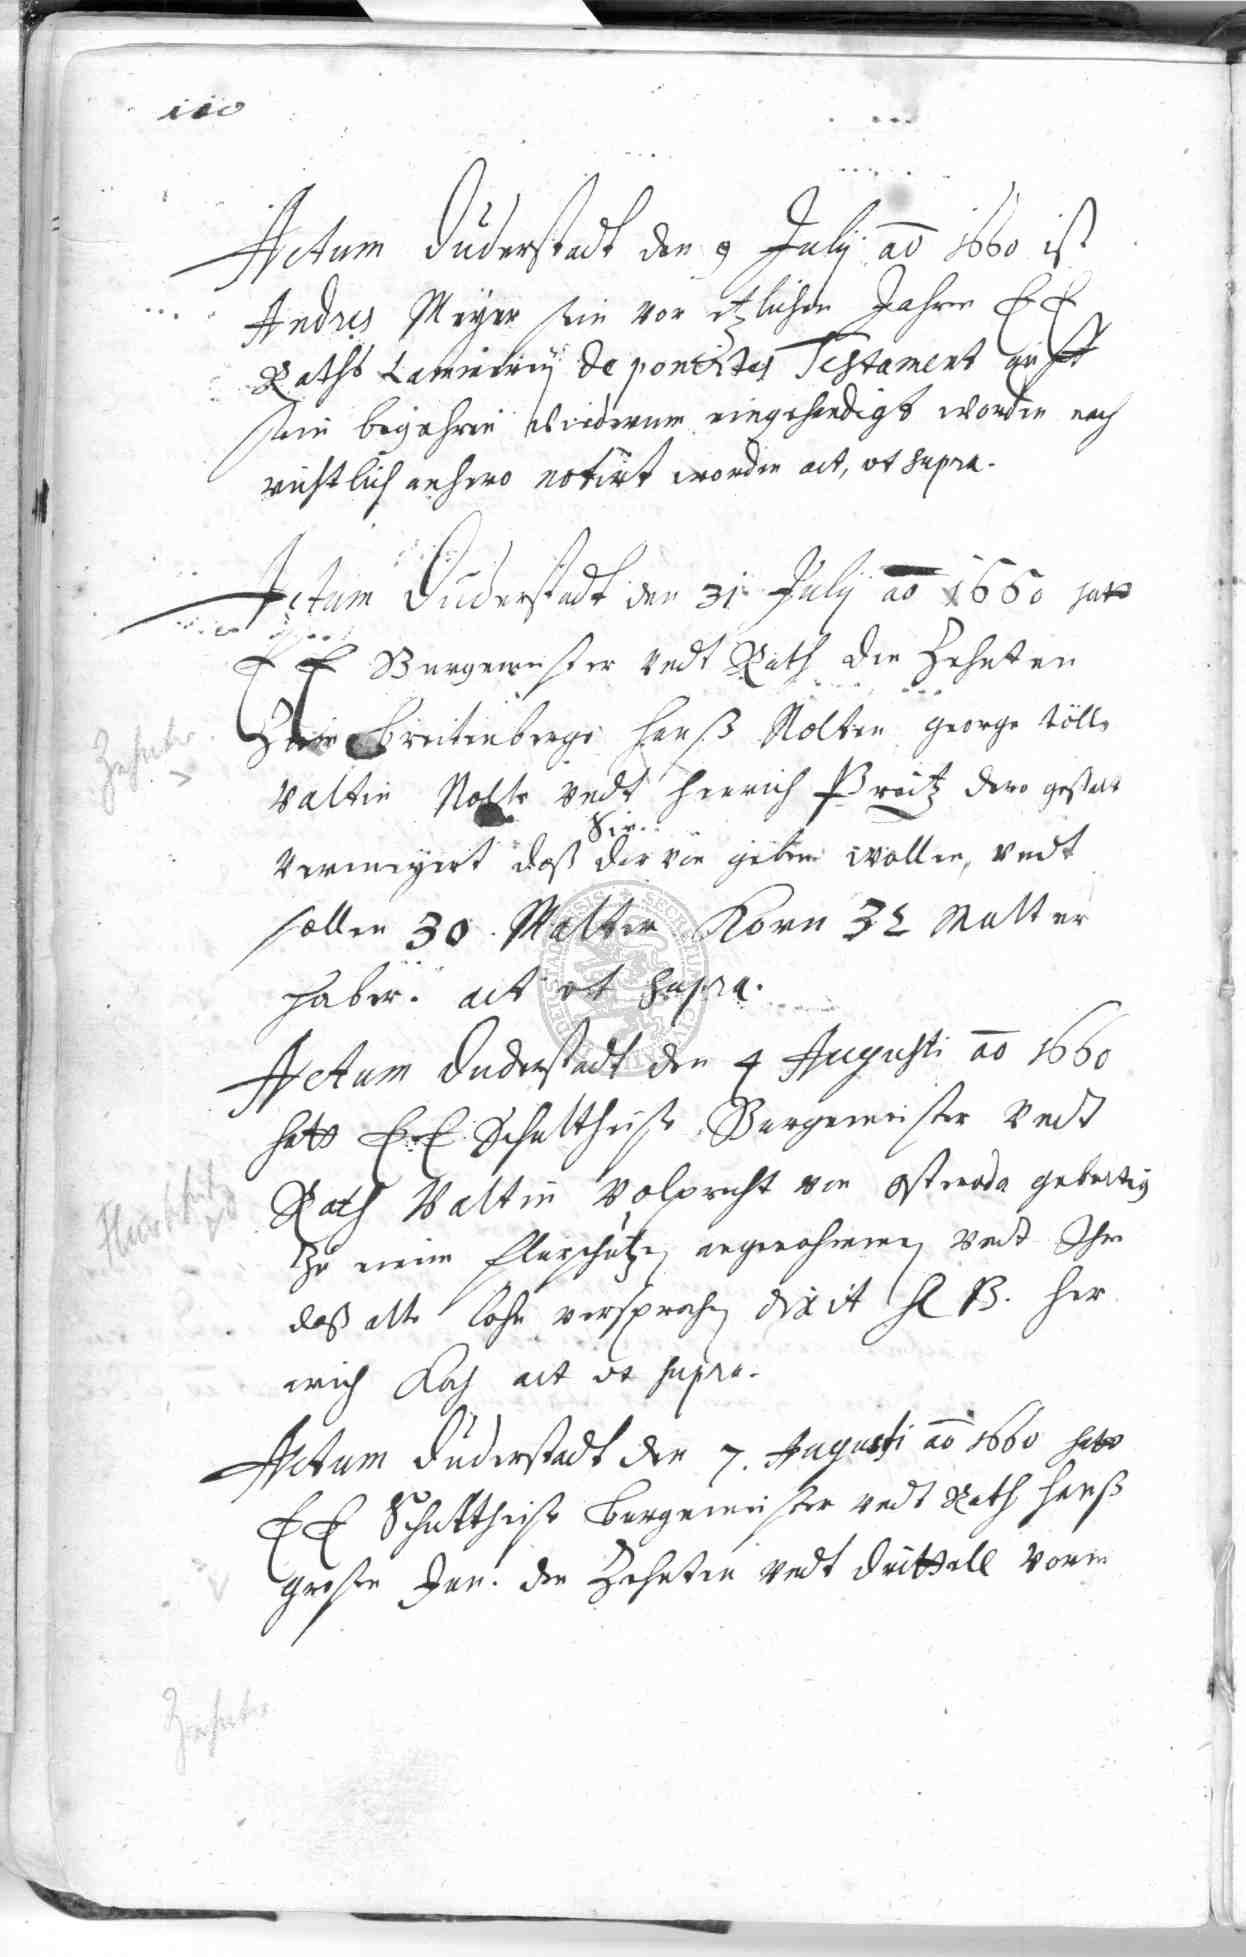 110
Actum Duderstadt den 9 July ao 1660 ist
Andres Meyer sein vor etzlichen Jahren E E
Raths Cammerey deponirtes Testament auff
sein begehren wiederumb eingehendigt worden nach
richtlich anhero notirt worden act, ut supra.
Actum Duderstadt den 31 July ao 1660 hatt
E E Burgemeister undt Rath den Zehnten
Zum breitenberge Hanß Nolten george tölle
Valtin Nolte undt Henrich Breitz dero gestalt
Sie
vermeyert daß darvon geben wollen, undt
sollen 30. Malter Korn 32 Malter
haber. act ut supra.
Actum Duderstadt den 4 Augusti ao 1660
hatt E. E. Schultheiß Burgemeister undt
Rath Valtin Volprecht von Osteroda gebertig
Zu einem flurschützen angenohmen undt Ihm
daß alte lohn versprochen dixit H B. Hen
rich Koch act ut supra.
Actum Duderstadt den 7. Augusti ao 1660 hatt
E E Schultheiß burgemeister undt Rath Hanß
großen Jun. den Zehnten undt drittell vorm
Zehnte
Zehnte
SECRETUM CIVITATIS DUDERSTADENSIS